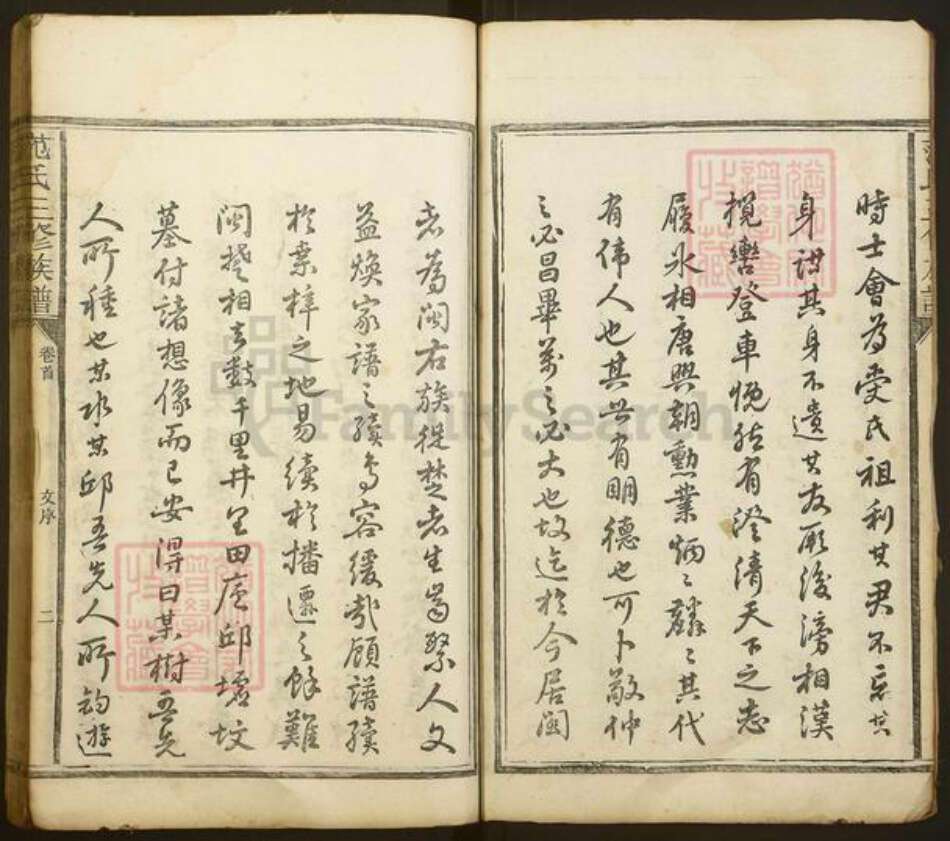 時士會為受氏祖利其君不忘其
身謀其身不遺其友厥後滂相漢
攬轡登車慨然有澄清天下之志
履冰相唐興朝勲業炳〻麟〻其代
有偉人也其世有明德也可卜敬仲
之必昌畢萬之必大也故迄於今居閩
者為閩右族徙楚者生齒繁人文
益煥家譜之續烏容緩哉顧譜續
於桑梓之地易續於播遷之餘難
閩楚相去數千里井里田廬邱墟坟
墓付諸想像而已安得曰某樹吾先
人所種也某水某邱吾先人所釣遊
范氏三修族譜
卷首
文序
二
FamilySearch